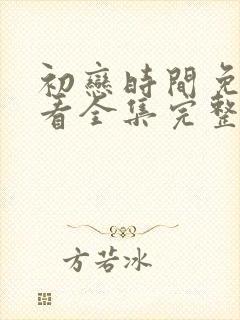 初戀時間免
看全集完整
方若冰